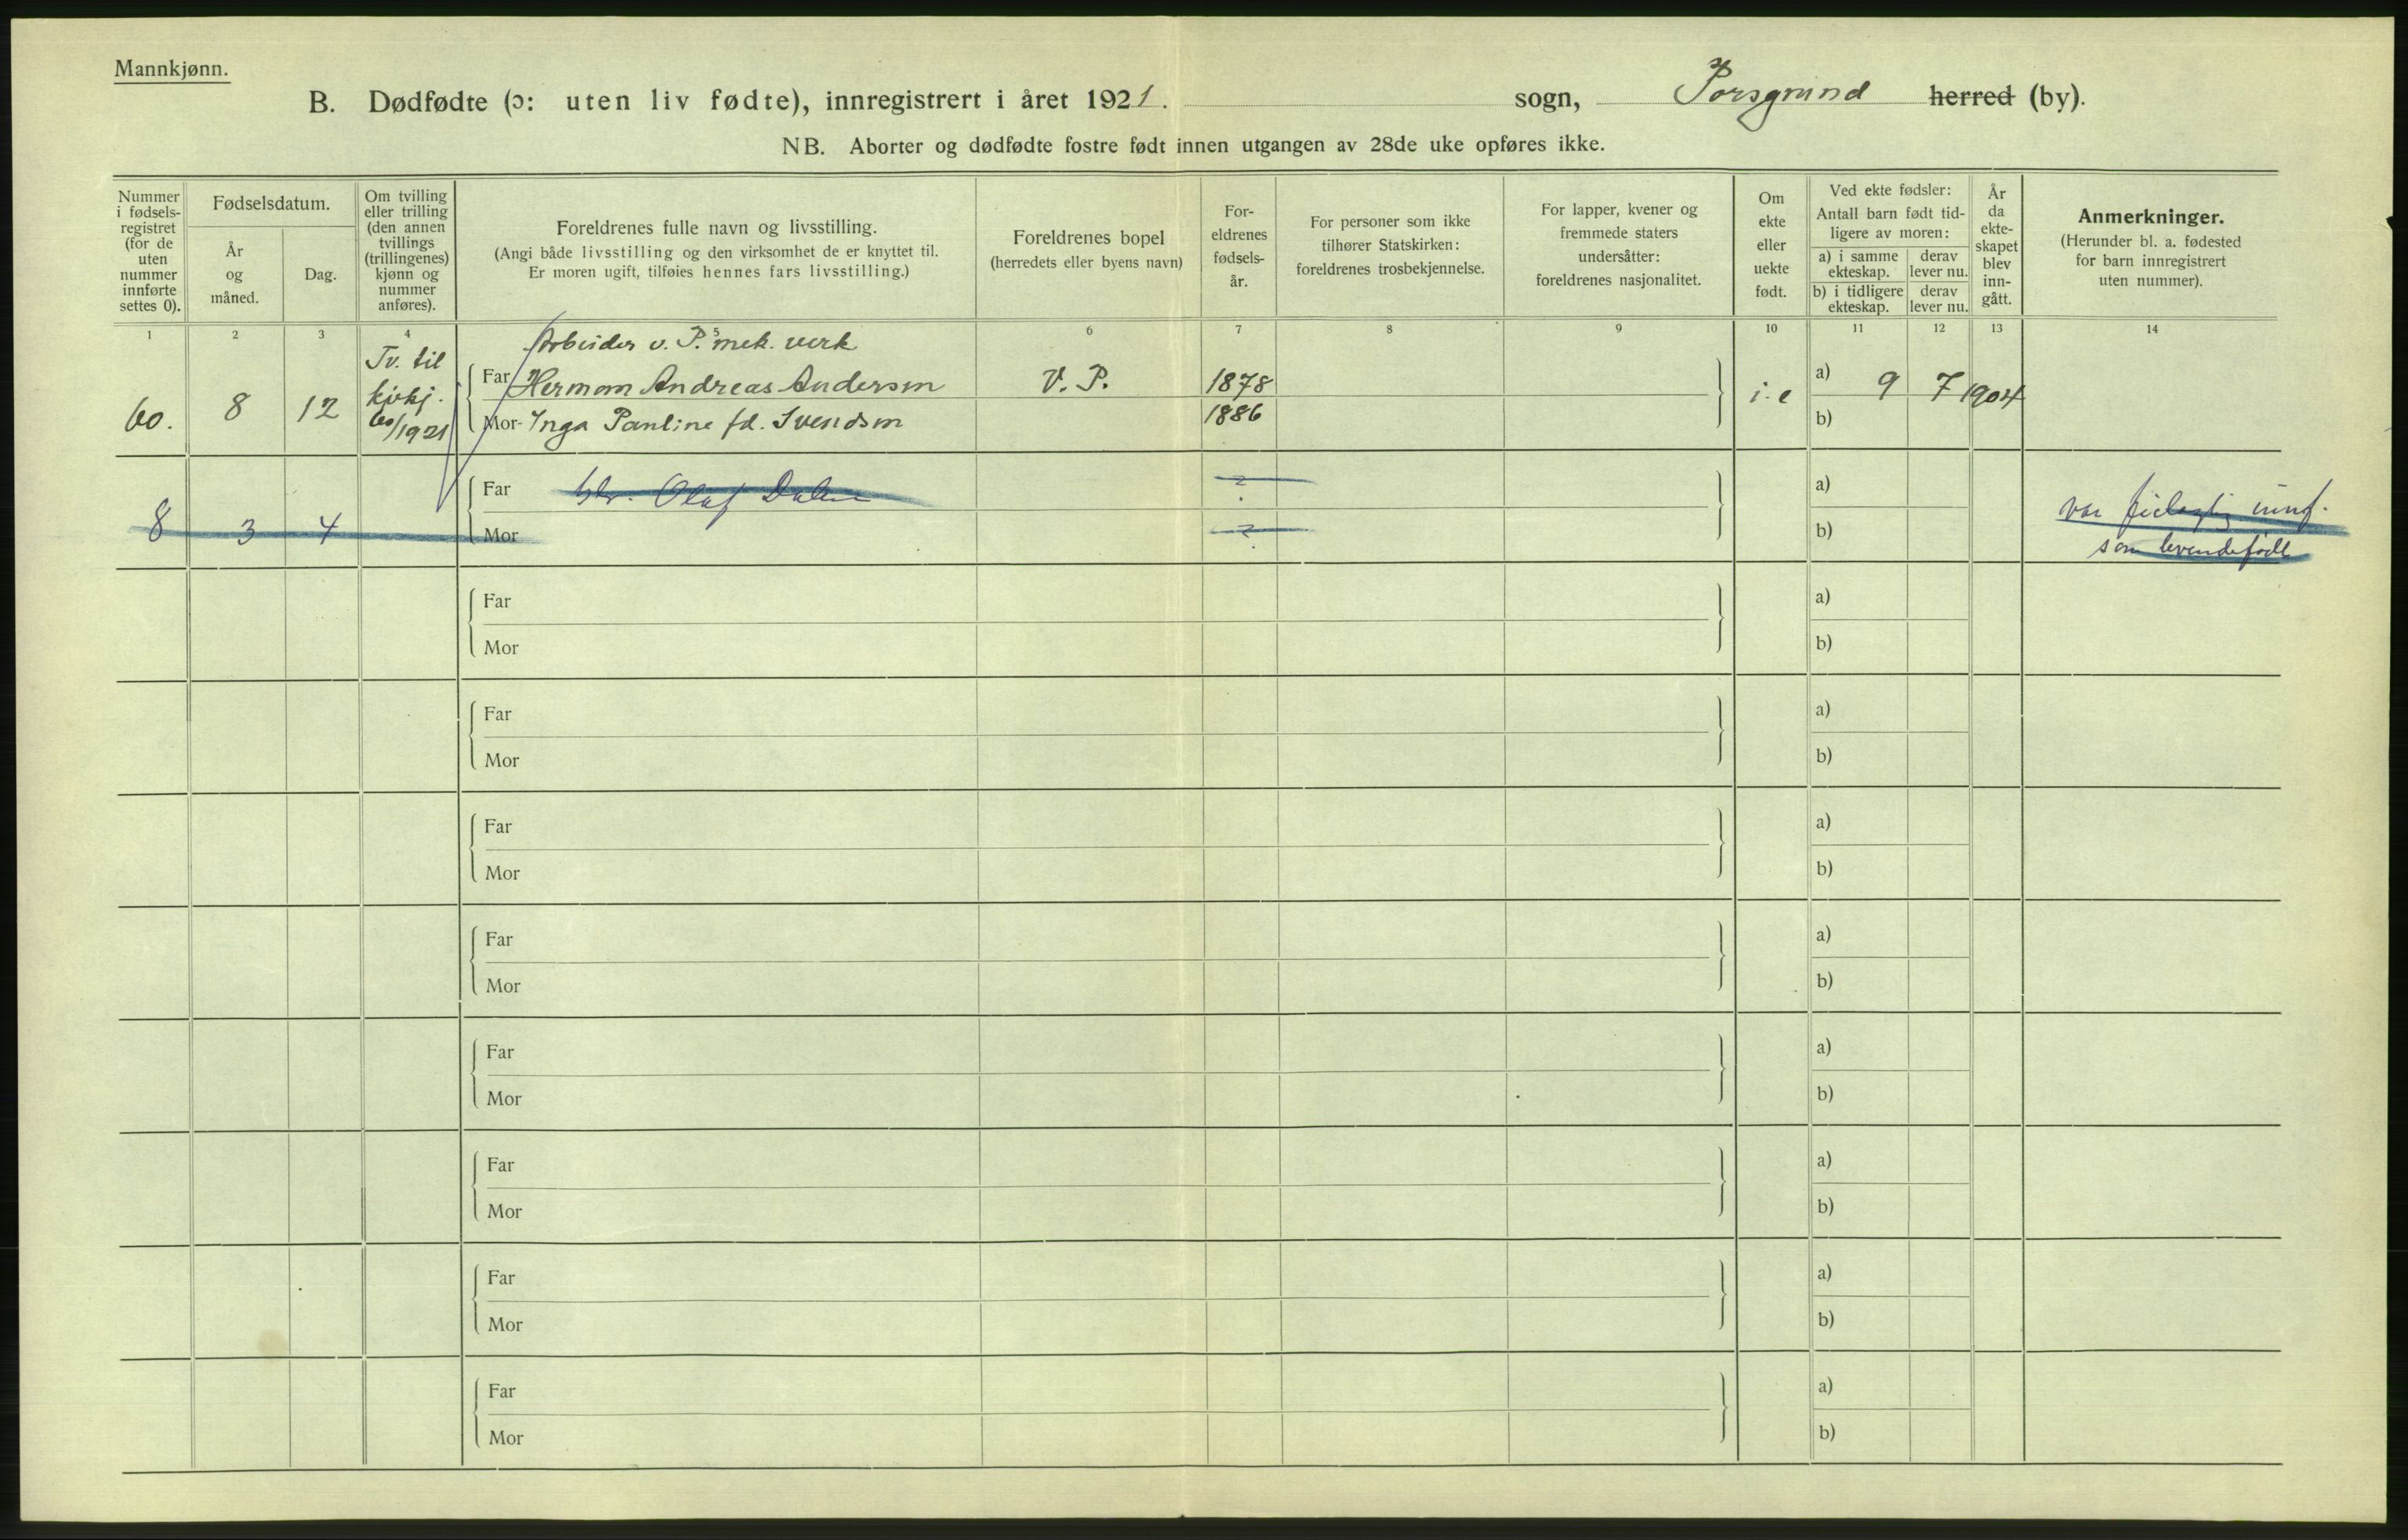 Mannkjønn.
B. Dødfødte (ɔ: uten liv fødte), innregistrert i året 1921. sogn, Porsgrund herred (by).
NB. Aborter og dødfødte fostre født innen utgangen av 28de uke opføres ikke.
Nummer
i fødsels-
registret
(for de
uten
nummer
innførte
settes 0).
Fødselsdatum.
År
og
måned.
Dag.
Om tvilling
eller trilling
(den annen
tvillings
(trillingenes)
kjønn og
nummer
anføres).
Foreldrenes fulle navn og livsstilling.
(Angi både livsstilling og den virksomhet de er knyttet til.
Er moren ugift, tilføies hennes fars livsstilling.)
Foreldrenes bopel
(herredets eller byens navn)
For-
eldrenes
fødsels-
år.
For personer som ikke
tilhører Statskirken:
foreldrenes trosbekjennelse.
For lapper, kvener og
fremmede staters
undersåtter:
foreldrenes nasjonalitet.
Om
ekte
eller
uekte
født.
Ved ekte fødsler:
Antall barn født tid-
ligere av moren:
a) i samme
ekteskap.
derav
lever nu.
b) i tidligere
ekteskap.
derav
lever nu.
År
da
ekte-
skapet
blev
inn-
gått.
Anmerkninger.
(Herunder bl. a. fødested
for barn innregistrert
uten nummer).
1 2 3 4 6 7 8 9 10 11 12 13 14
Arbeider v. P.s mek. verk
60. 8 12
Tv. til
kvkj.
60/1921
Far Herman Andreas Andersen V. P. 1878 i. e a) 9 7 1904
Mor Inga Pauline fd. Svendsen 1886 b)
8 3 4
Far Olaf Dalen ? a)
Mor ? b)
var feilagtig innf.
som levendefødt
Far a)
Mor b)
Far a)
Mor b)
Far a)
Mor b)
Far a)
Mor b)
Far a)
Mor b)
Far a)
Mor b)
Far a)
Mor b)
Far a)
Mor b)